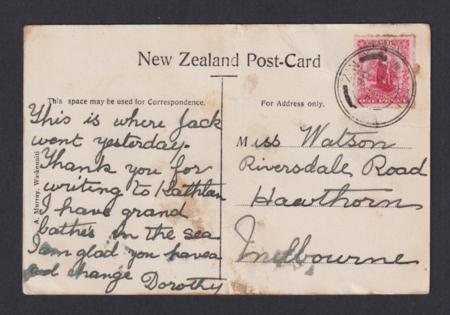 New Zealand Post-Card
This space may be used for Correspondence.
For Address only.
This is where Jack
went yesterday.
Thank you for
writing to Kathlan
I have grand
bathes in the sea
I am glad you have a
change Dorothy
Miss Watson
Riversdale Road
Hawthorn
Melbourne
A. Murray, Waikouaiti